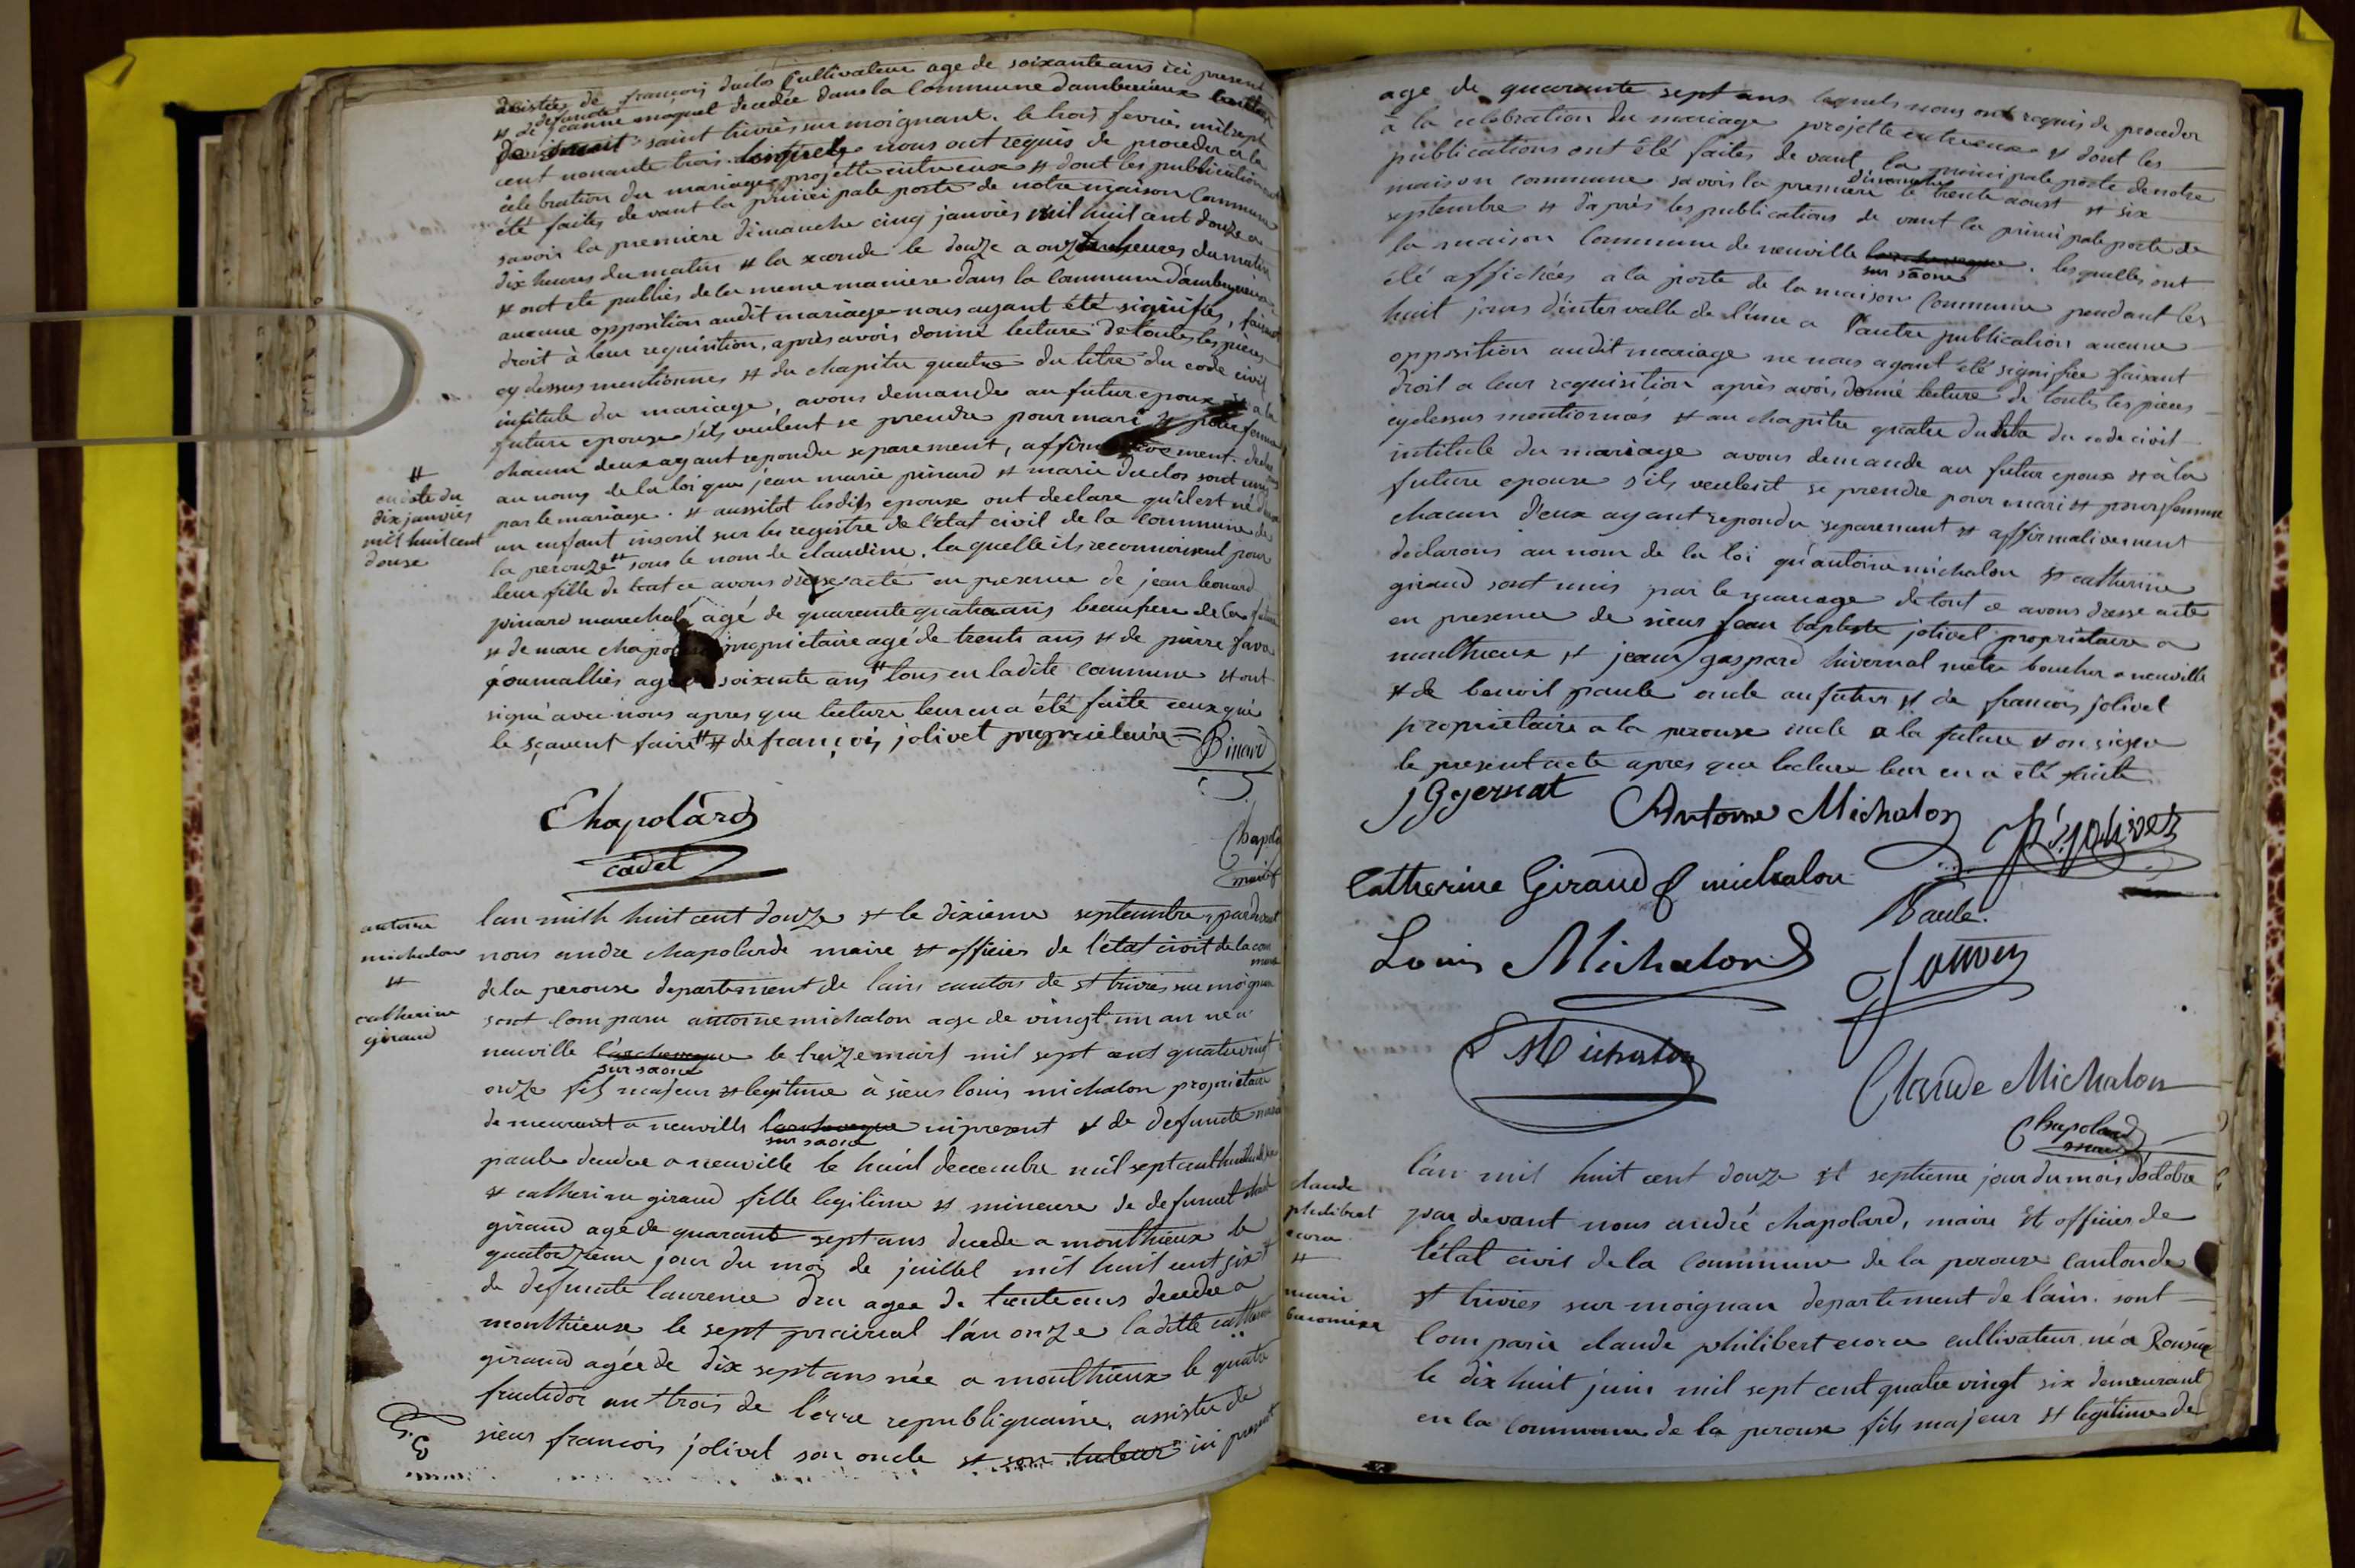 assistée de françois duclos Cultivateur age de soixante ans ici present
et de defunte jeanne moquet decedée dans la Commune damberieux
saint trivier sur moignant. le trois fevrier mil sept
cent nonante trois. lesquels nous ont requis de proceder a la
célebration du mariage projetté entre eux et dont les publications ont
été faites devant la principale porte de notre maison Commune
savoir la premiere dimanche cinq janvier mil huit cent douze a
dix heures du matin et la seconde le douze a onze heures du matin
et ont ete publiés de la meme maniere dans la Commune d'amberieux
aucune opposition audit mariage nous ayant été signifiés, faisant
droit à leur requisition, après avoir donné lecture de toutes les pieces
cy dessus mentionnes et du chapitre quatre du titre du code civil
intitule du mariage, avons demande au futur epoux et a la
future epouse s'ils veulent se prendre pour mari et pour femme
chacun deux ayant repondu separement, affirmativement. declarons
au nom de la loi que jean marie pinard et marie duclos sont unis
par le mariage. et aussitot lesdits epoux ont declare qu'il est né d'eux
un enfant inscrit sur les registre de l'état civil de la commune de
la perouze # sous le nom de claudine, la quelle ils reconnoissent pour
leur fille de tout ce avons dresse acte en presence de jean leonard
pinard marechal agé de quarente quatre ans beaufrere de la future
et de marc chapolard proprietaire agé de trente ans et de pierre favre
journallier agé de soixente ans # tous en ladite commune et ont
signé avec nous apres que lecture leur en a été faite ceux qui
le sçavent faire # et de françois jolivet proprietaire =
Pinard
#
en date du
dix janvier
mil huit cent
douse
Chapolard
cadet
Chapolard
maire
antoine
michalon
et
catherine
giraud
lan mill huit cent douze et le dixieme septembre, pardevant
nous andre chapolarde maire et officier de l'état civil de la commune
de la perouse departement de lain canton de st trivier sur moignan
sont Comparu antoine michalon age de vingt un an né a
neuville l'archeveque sur saone le treize mars mil sept cent quatre vingt
onze fils majeur et legitime à sieur louis michalon proprietaire
demeurant a neuville larcheveque sur saone ici present et de defuncte marie
paule decedee a neuville le huit decembre mil sept cent
et catherine giraud fille legitime et mineure de defunct claude
giraud agé de quarante sept ans decede a monthieux le
quatorzieme jour du mois de juillet mil huit cent six et
de defuncte laurence dru agee de trente ans decedee a
monthieux le sept prairial l'an onze laditte catherine
giraud agée de dix sept ans née a monthieux le quatre
fructidor an trois de l'erre republiquaine, assistee de
sieur francois jolivet son oncle et son tuteur ici present
age de quarante sept ans lesquels nous ont requis de proceder
à la celebration du mariage projetté entre eux et dont les
publications ont été faites devant la principale porte de notre
maison commune savoir la premiere dimanche le trente aoust et six
septembre et d'après les publications devant la principale porte de
la maison Commune de neuville larcheveque sur saone. lesquelles ont
été affichées a la porte de la maison Commune pendant les
huit jours d'intervalle de l'une a l'autre publication aucune
opposition audit mariage ne nous ayant été signifiée faisant
droit a leur requisition après avoir donné lecture de toutes les pieces
cydessus mentionnés et au chapitre quatre du titre du code civil
intitule du mariage avons demande au futur epoux et à la
future epouse s'ils veulent se prendre pour mari et pour femme
chacun d'eux ayant repondu separement et affirmativement
declarons au nom de la loi qu'antoine michalon et catherine
giraud sont unis par le mariage de tout ce avons dresse acte
en presence de sieur jean baptiste jolivet proprietaire a
monthieux et jean gaspard hivernat metre boucher a neuville
et de benoit paule oncle au futur et de francois jolivet
proprietaire a la perouse oncle a la future et on signe
le present acte apres que lecture leur en a été faite
Antoine Michalon
Catherine Giraud f michalon
Paule
Louis Michalon
Jolivet
Michalon
Claude Michalon
Chapolard
maire
claude
philibert
ecora
et
marie
l'an mil huit cent douze et septieme jour du mois d'octobre
par devant nous andré chapolard, maire et officier de
l'état civil de la Commune de la perouse canton de
st trivier sur moignan departement de l'ain. sont
Comparu claude philibert ecora cultivateur né a
le dix huit juin mil sept cent quatre vingt six demeurant
en la Commune de la perouse fils majeur et legitime de